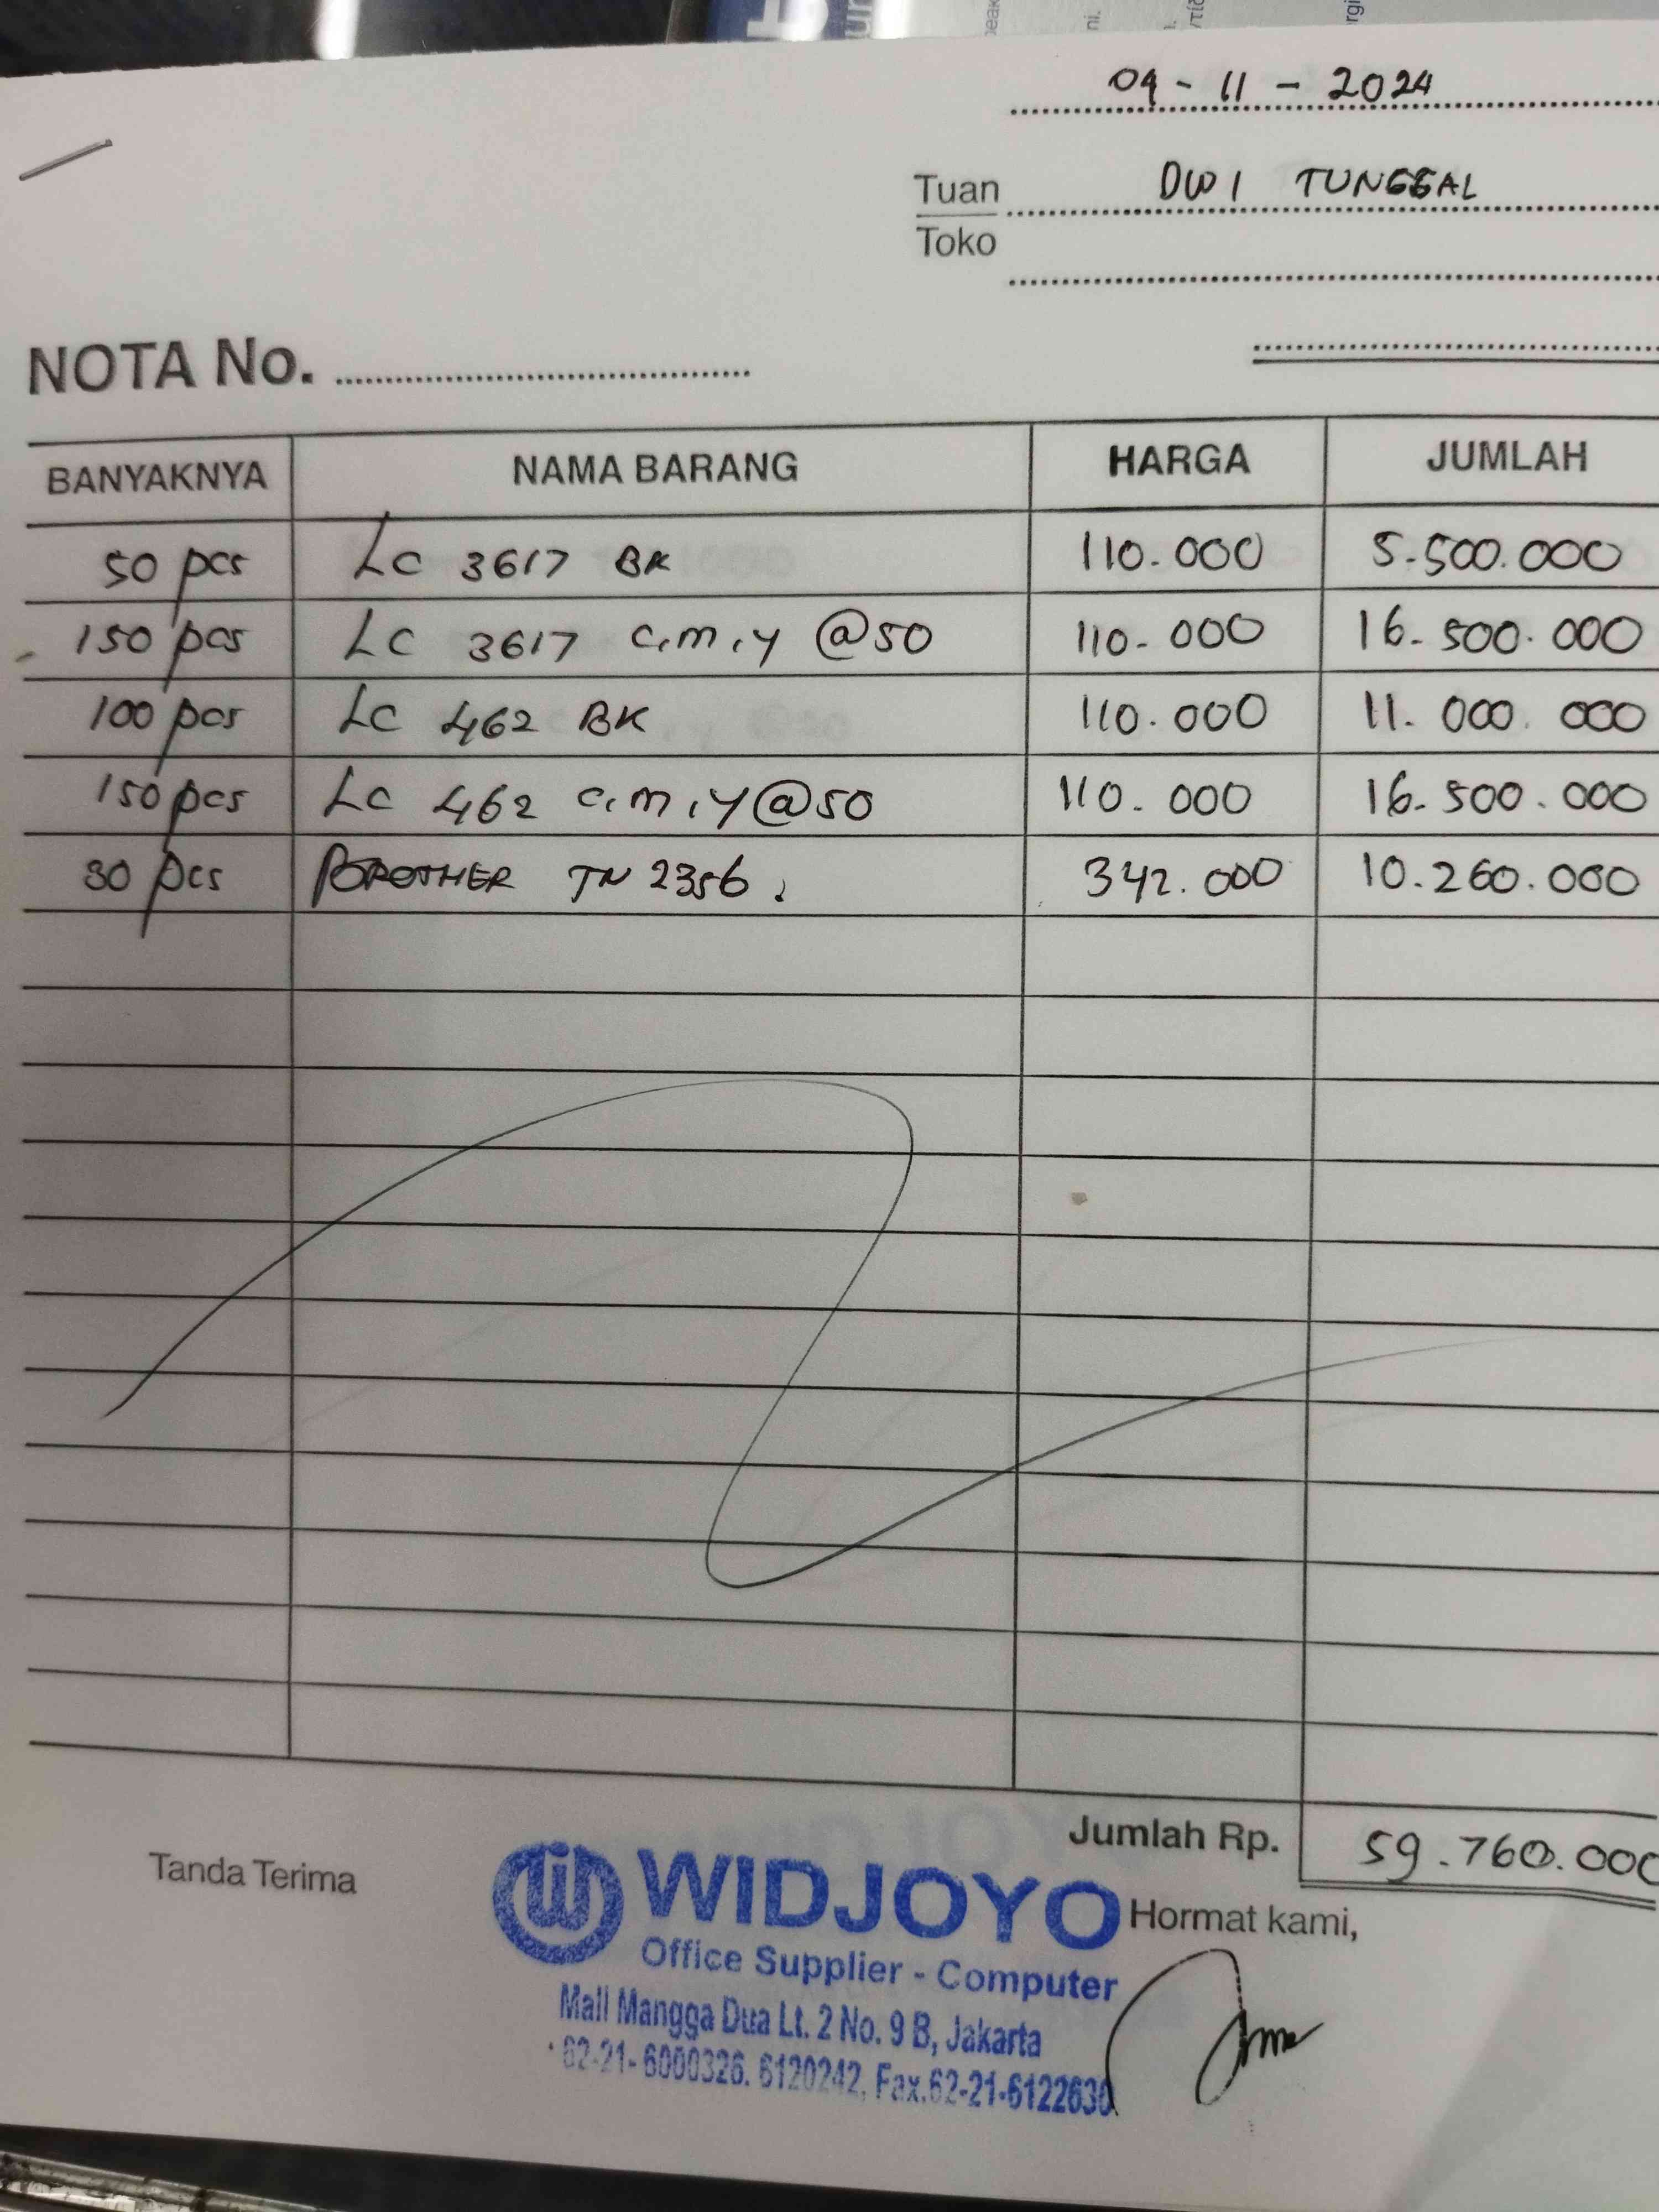 09 - 11 - 2024
Tuan DWI TUNGGAL
Toko
NOTA No.
BANYAKNYA NAMA BARANG HARGA JUMLAH
50 pcs LC 3617 BK 110.000 5.500.000
150 pcs LC 3617 c,m,y @50 110.000 16.500.000
100 pcs LC 462 BK 110.000 11.000.000
150 pcs LC 462 c,m,y @50 110.000 16.500.000
30 pcs BROTHER TN 2356 342.000 10.260.000
Jumlah Rp. 59.760.000
Tanda Terima
WIDJOYO
Office Supplier - Computer
Mall Mangga Dua Lt. 2 No. 9 B, Jakarta
62-21-6000326. 6120242, Fax.62-21-6122630
Hormat kami,